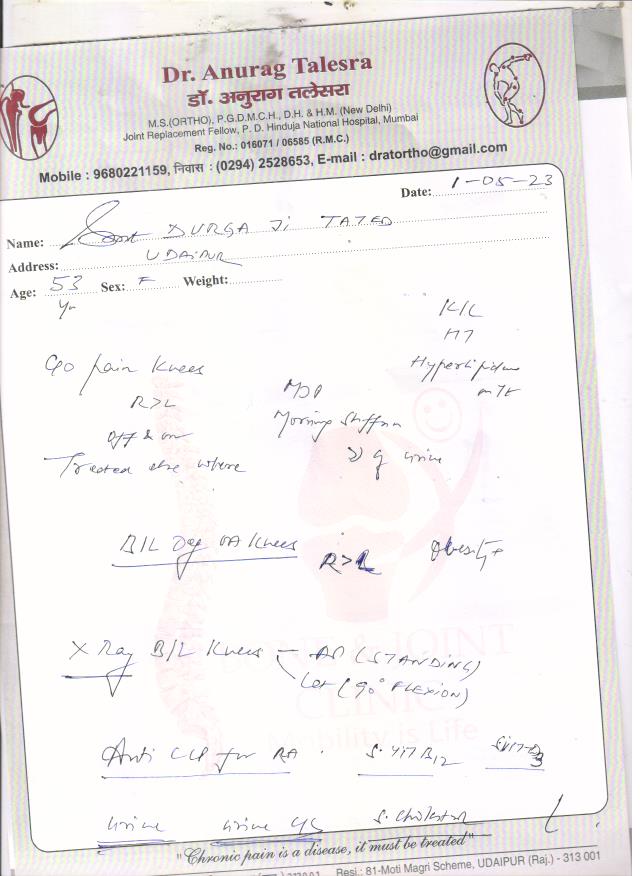 Dr. Anurag Talesra
डॉ. अनुराग तलेसरा
M.S.(ORTHO), P.G.D.M.C.H., D.H. & H.M. (New Delhi)
Joint Replacement Fellow, P. D. Hinduja National Hospital, Mumbai
Reg. No.: 016071 / 06585 (R.M.C.)
Mobile : 9680221159, निवास : (0294) 2528653, E-mail : dratortho@gmail.com
Date: 1-05-23
Name: DURGA Ji TATED
Address: UDAIPUR
Age: 53 Yr Sex: F Weight:
K/C
HT
pain knees
R>L
off & on
Treated else where
Morning stiffn
urine
B/L Deg OA Knees R>L Obesity+
X Ray B/L Knees - AP (STANDING)
Lat (90° FLEXION)
Anti CCP for RA. S. VIT B12 S.VIT-D3
urine urine C/S S. Cholester
JOINT
CLINIC
Mobility is Life
"Chronic pain is a disease, it must be treated"
Resi.: 81-Moti Magri Scheme, UDAIPUR (Raj.) - 313 001